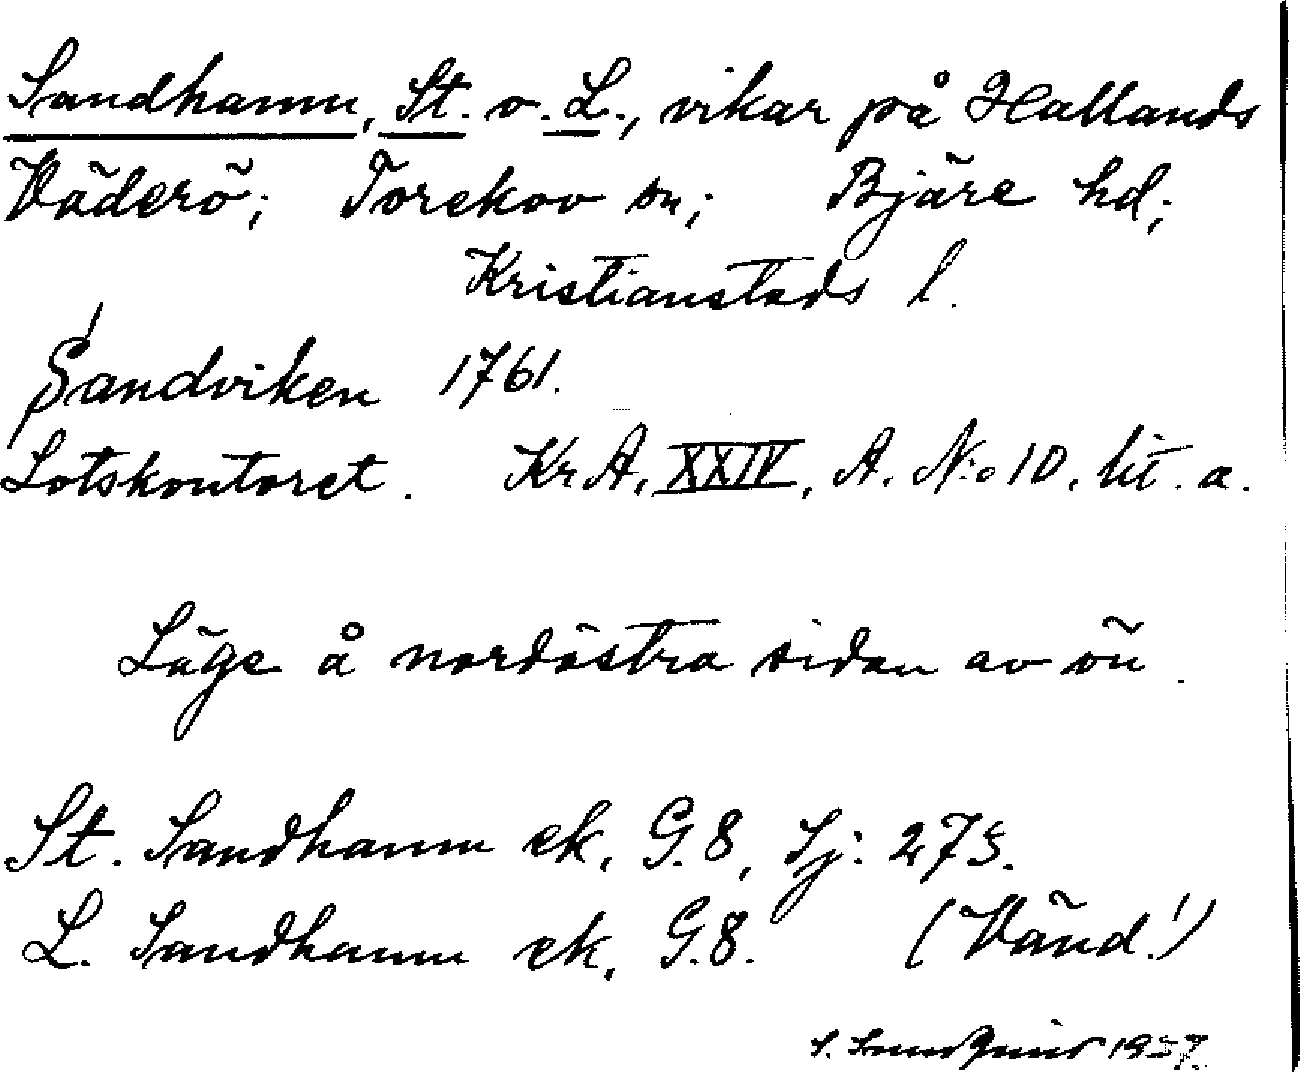 Sandhamn, St. o. L., vikar på Hallands
Väderö; Torekov sn; Bjäre hd;
Kristianstads l.
Sandviken 1761.
Lotskontoret. KrA, XXIV, A. N:o 10. lit. a.
Läge å nordöstra sidan av ön.
St. Sandhamn ek. G. 8, Sj: 275.
L. Sandhamn ek. G. 8. (Vänd!)
1937.